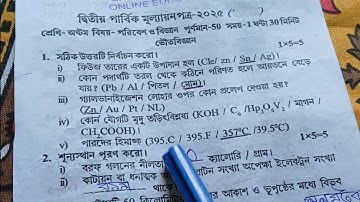 ONLINE
দ্বিতীয় পার্বিক মূল্যায়নপত্র-২০২৫ (
শ্রেণি- অষ্টম বিষয়- পরিবেশ ও বিজ্ঞান পূর্ণমান-50 সময়-1 ঘণ্টা 30 মিনিট
ভৌতবিজ্ঞান
1. সঠিক উত্তরটি নির্বাচন করো। 1×5=5
i) ফিউজ তারের একটি উপাদান হল (Cle/ zn / Sn / Ag)
ii) কোন পদার্থটি তরল থেকে কঠিনে পরিণত হলে আয়তনে বেড়ে
যায়? (Pb / Al / পিতল / মোম)।
iii) গ্যালভানাইজেশনে লোহার ওপর কোন প্রলেপ দেওয়া হয়?
(Zn / Au / Pt / NL)
iv) কোন যৌগটি মৃদু তড়িৎবিশ্লেষ্য (KOH / C6H12O6V2 / মাগন /
CH3COOH)।
v) পারদের হিমাঙ্ক (395.C / 395.F / 357°C /39.5°C)
2. শূন্যস্থান পূরণ করো। 1×5=5
i) বরফ গলনের লীনতাপ ক্যালোরি / গ্রাম।
ii) কাটায়ন বা ধনাত্মক আ সংখ্যা অপেক্ষা ইলেকট্রন সংখ্যা
আকাশ ও ভূপৃষ্ঠের মধ্যে বিভব